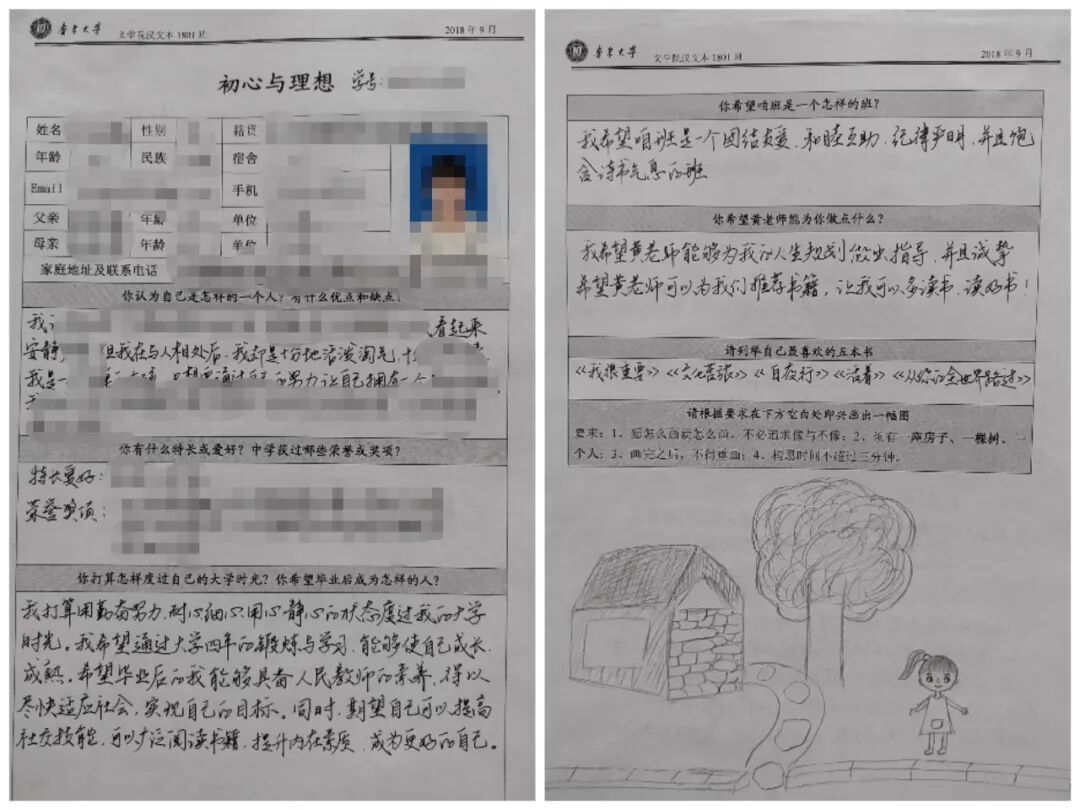 鲁东大学 文学院汉文本1801班 2018年9月
初心与理想 学号:
姓名 性别 籍贯
年龄 民族 宿舍
Email 手机
父亲 年龄 单位
母亲 年龄 单位
家庭地址及联系电话
你认为自己是怎样的一个人?有什么优点和缺点?
看起来
安静 但我在与人相处后,我却是十分地活泼淘气,
我是一 努力让自己拥有一个
你有什么特长或爱好?中学获过哪些荣誉或奖项?
特长爱好:
荣誉奖项:
你打算怎样度过自己的大学时光?你希望毕业后成为怎样的人?
我打算用勤奋努力,耐心细心,用心静心的状态度过我的大学
时光。我希望通过大学四年的锻炼与学习,能够使自己成长、
成熟。希望毕业后的我能够具备人民教师的素养,得以
尽快适应社会,实现自己的目标。同时,期望自己可以提高
社交技能,可以广泛阅读书籍,提升内在素质,成为更好的自己。
鲁东大学 文学院汉文本1801班 2018年9月
你希望咱班是一个怎样的班?
我希望咱班是一个团结友爱、和睦互助、纪律严明,并且饱
含诗书气息的班
你希望黄老师能为你做点什么?
我希望黄老师能够为我的人生规划做出指导,并且诚挚
希望黄老师可以为我们推荐书籍,让我可以多读书,读好书!
请列举自己最喜欢的五本书
《我很重要》《文化苦旅》《白夜行》《活着》《从你的全世界路过》
请根据要求在下方空白处即兴画出一幅图
要求:1、想怎么画就怎么画,不必追求像与不像;2、须有一座房子、一棵树、一
个人;3、画完之后,不得重画;4、构思时间不超过三分钟。